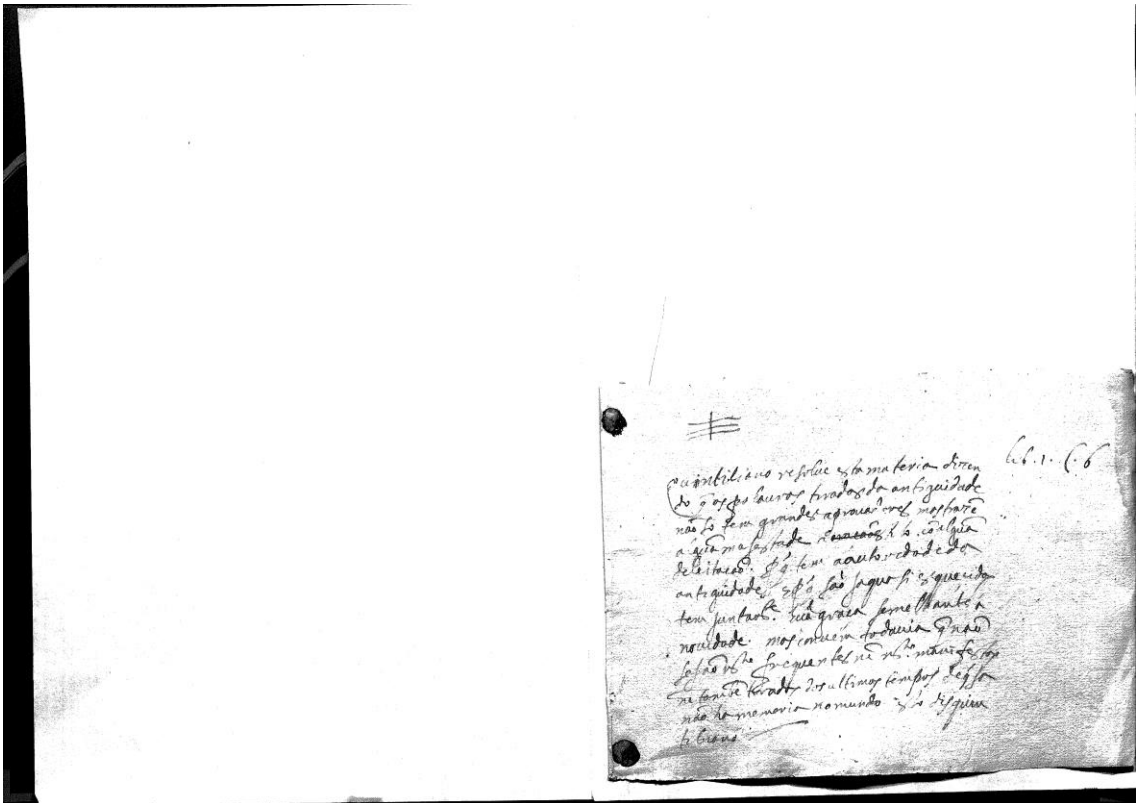 Quintiliano resolue esta materia dizen
do q̃ as palauras tiradas da antiguidade
não só tem grandes mas tras ẽ
algũa magestade não só. cõ algũa
deleitacaõ. tem a autoridade da
antiguidade, e são ja quasi esquecidas
tem juntam.te hũa graca semelhante a
nouidade. mas conuem todauia q̃ naõ
sejaõ m.to frequentes nẽ m.to manifestas
nẽ tambẽ tiradas dos ultimos tempos de q̃ ja
não ha memoria no mundo diz quin
tiliano
lib. 1. C. 6